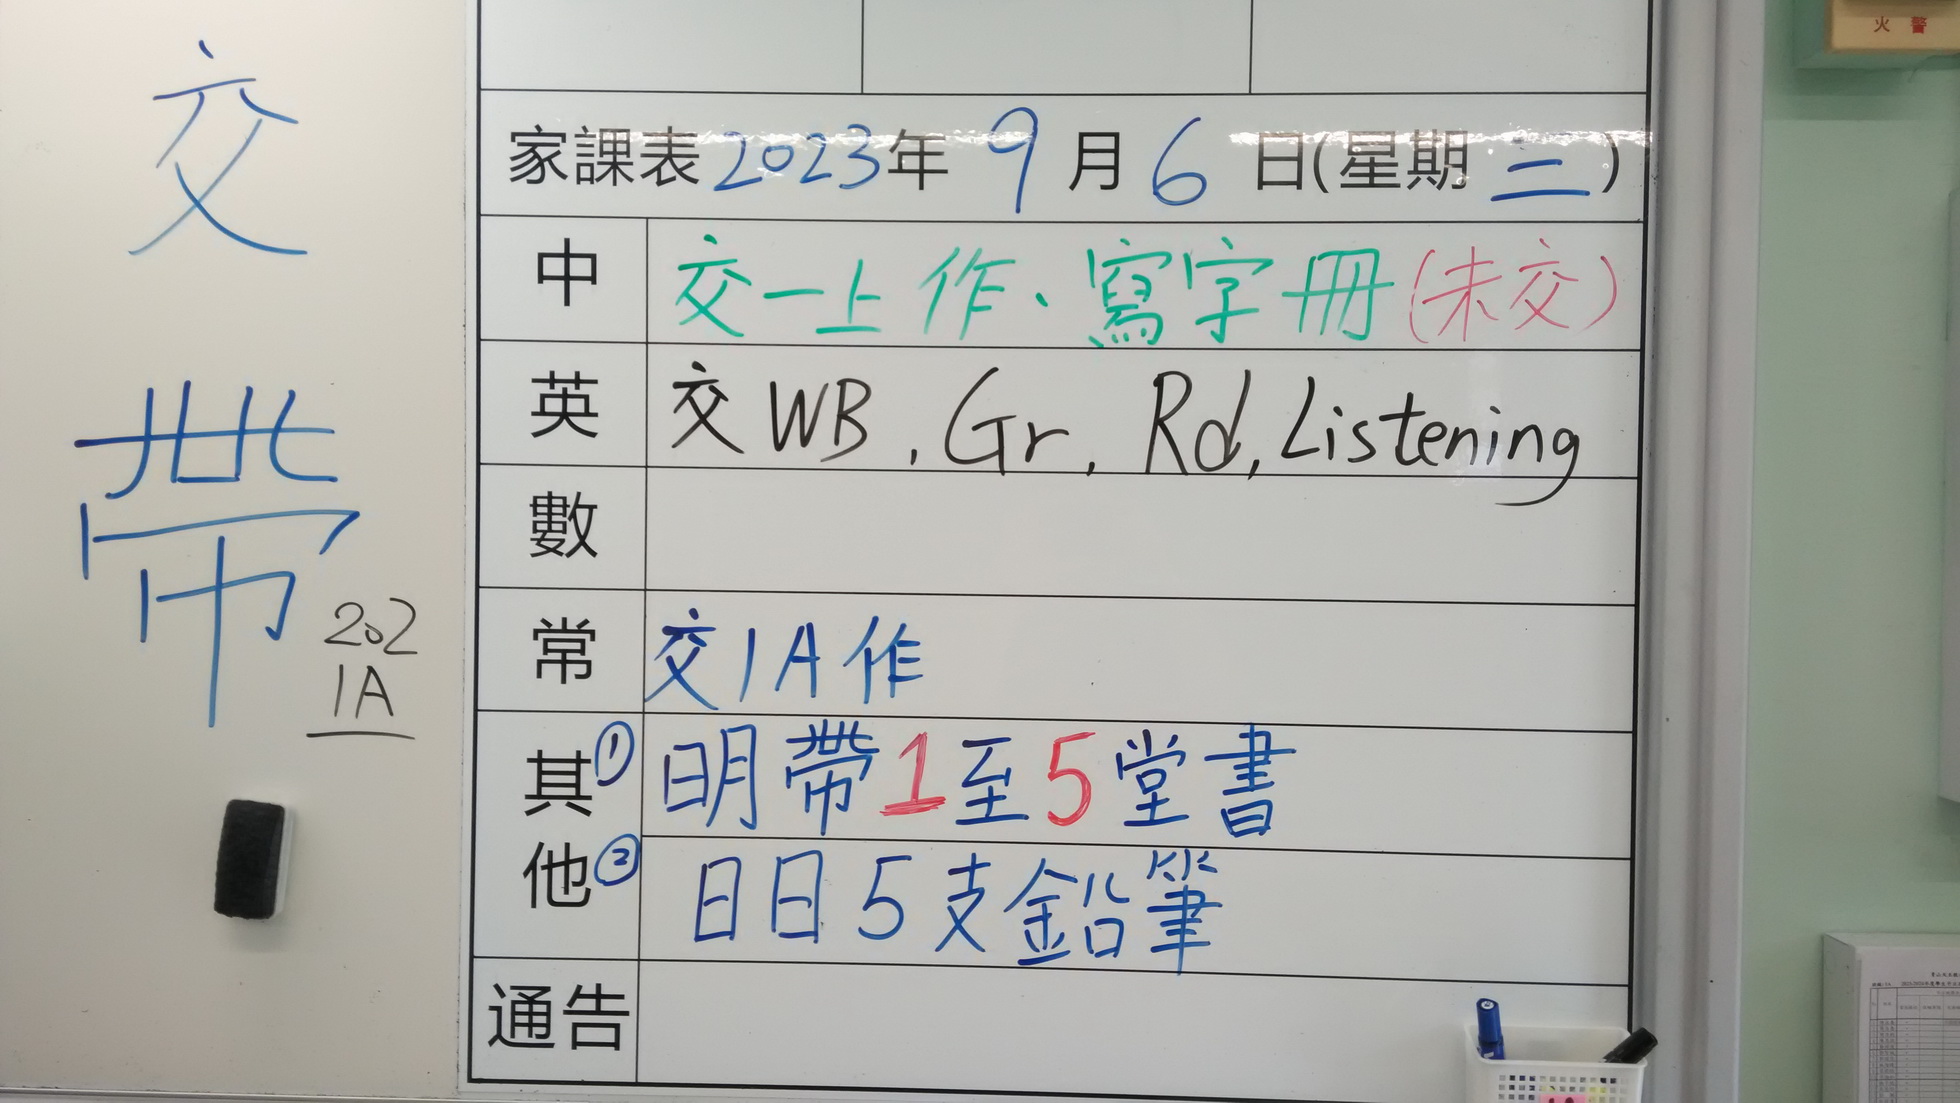 交
帶
202
1A
家課表 2023年 9 月 6 日(星期 三)
中 交一上作、寫字冊(未交)
英 交 WB, Gr, Rd, Listening
數
常 交1A作
其他
① 明帶1至5堂書
② 日日5支鉛筆
通告
火警